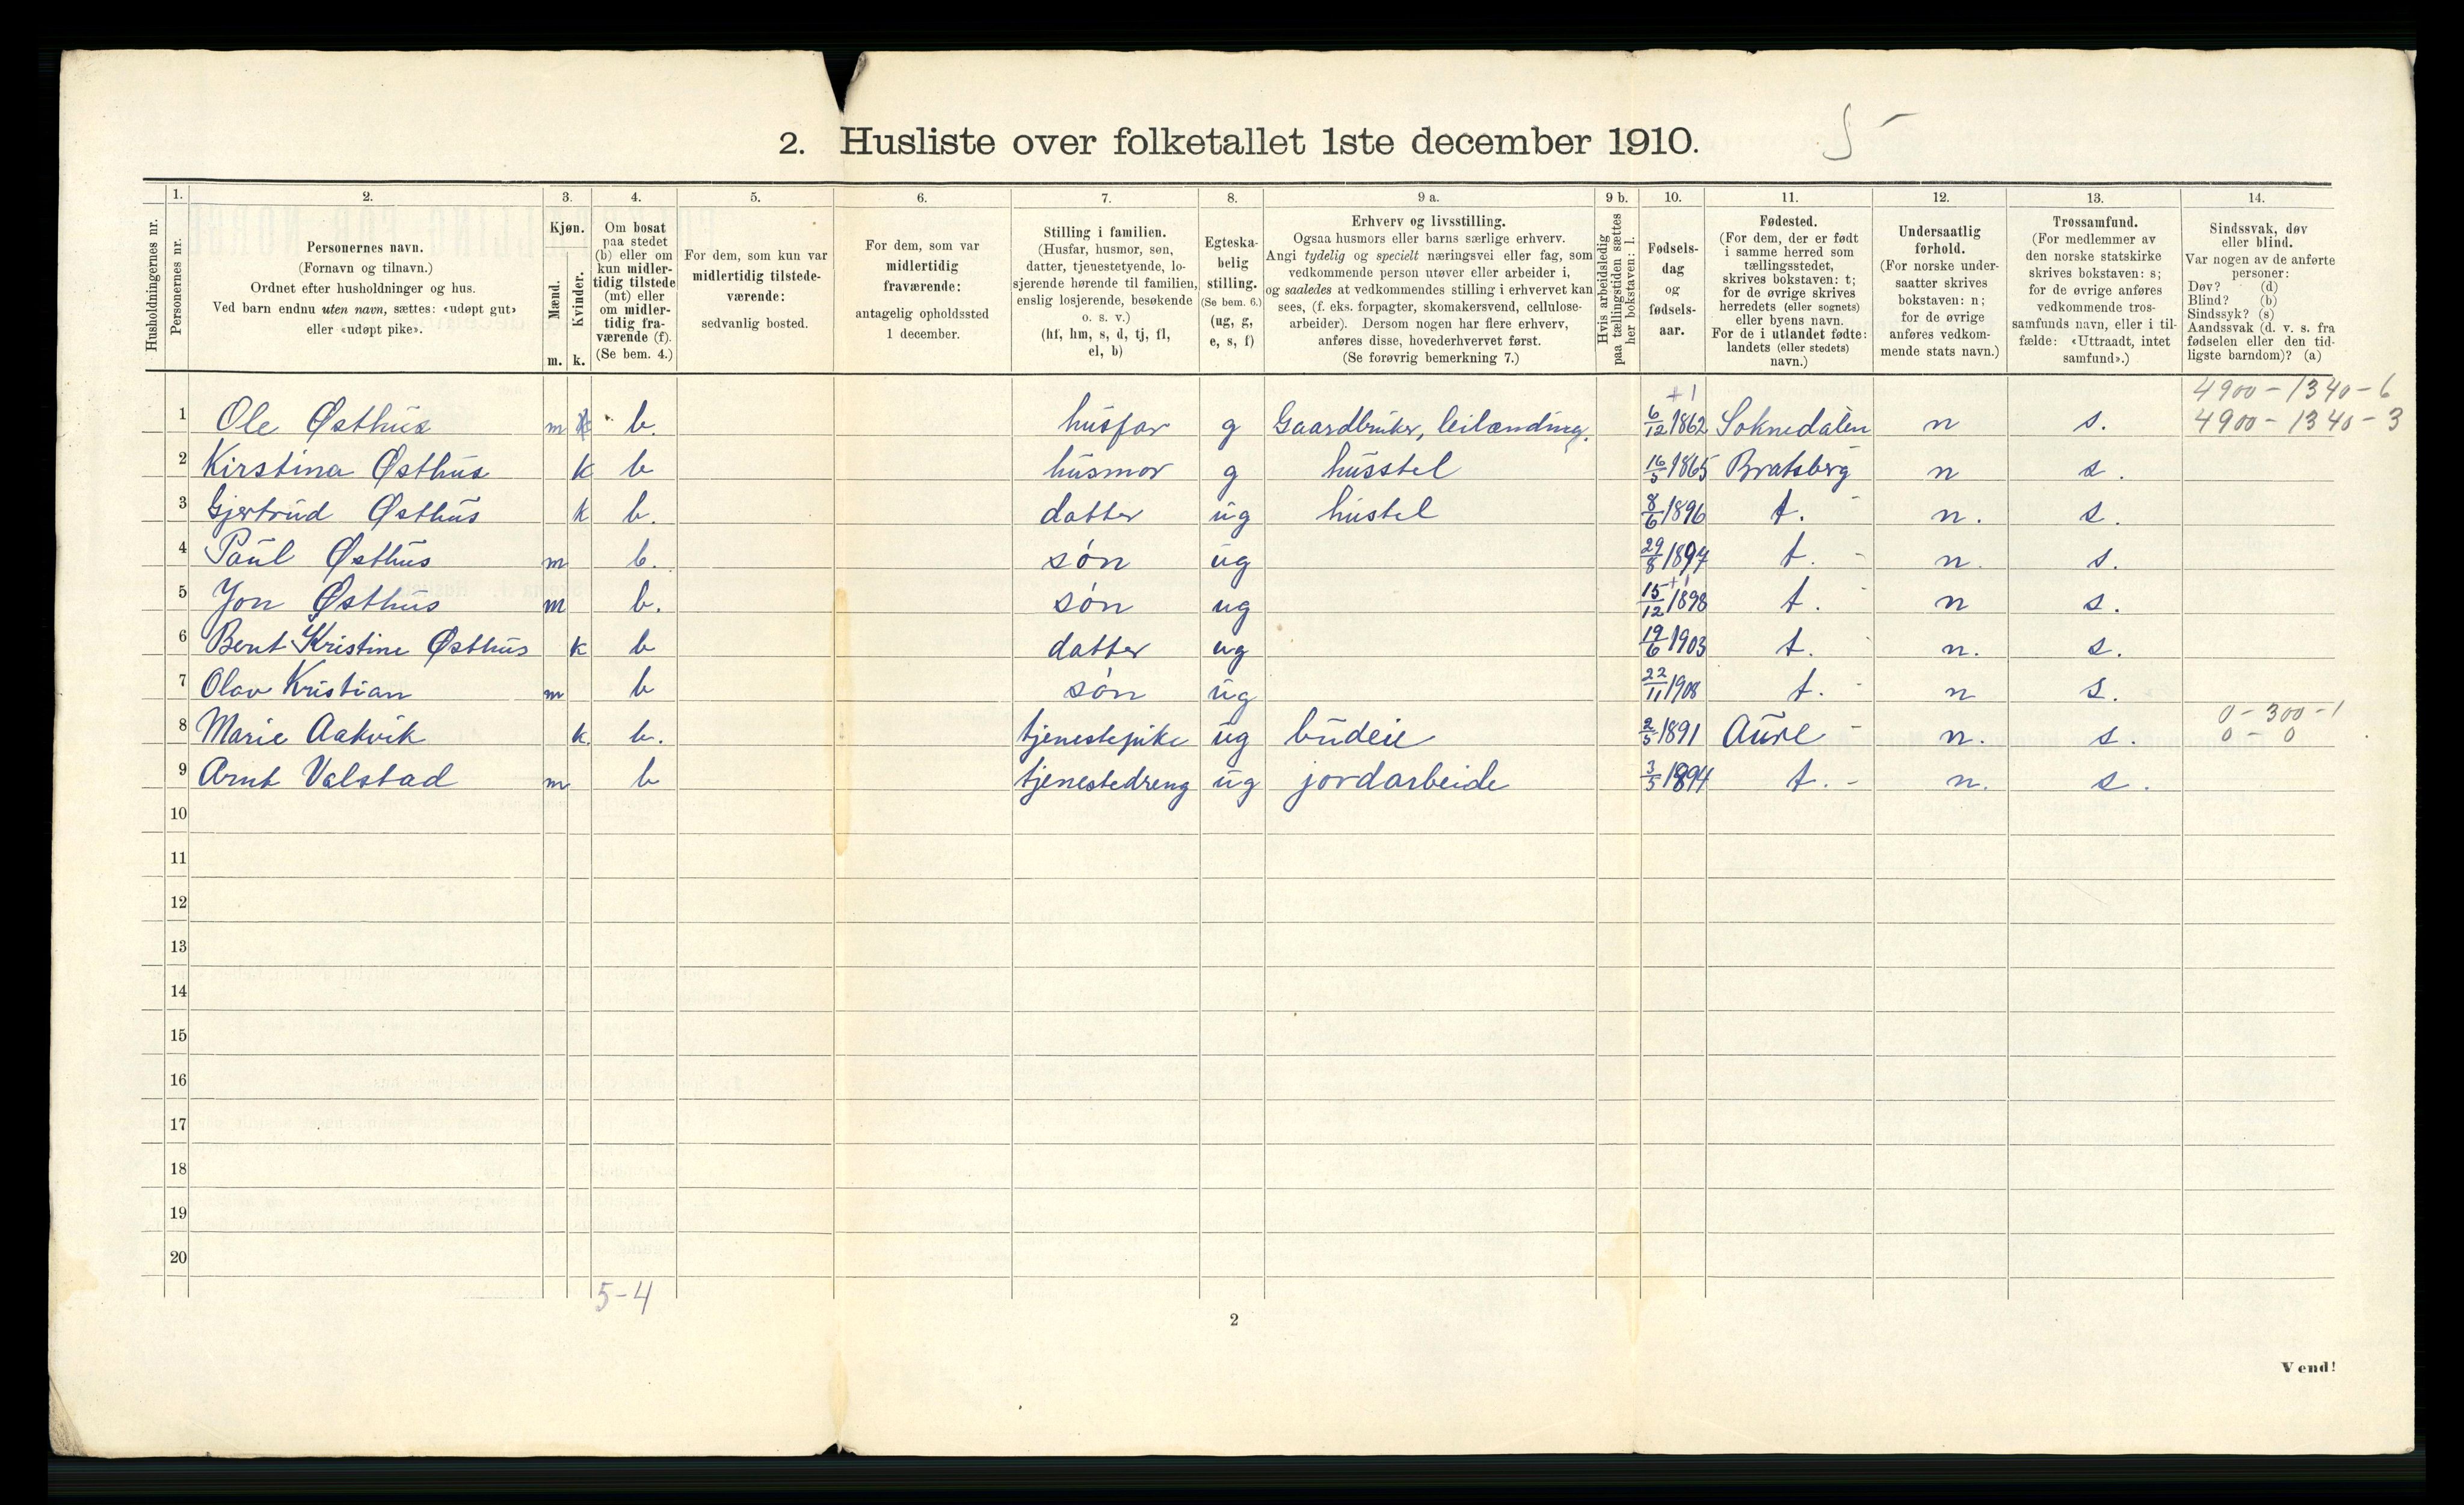 2. Husliste over folketallet 1ste december 1910. 5
1. 2. 3. 4. 5. 6. 7. 8. 9 a. 9 b. 10. 11. 12. 13. 14.
Husholdningernes nr.
Personernes nr.
Personernes navn.
(Fornavn og tilnavn.)
Ordnet efter husholdninger og hus.
Ved barn endnu uten navn, sættes: «udøpt gut»
eller «udøpt pike».
Kjøn.
Mænd.
Kvinder.
m. k.
Om bosat
paa stedet
(b) eller om
kun midler-
tidig tilstede
(mt) eller
om midler-
tidig fra-
værende (f).
(Se bem. 4.)
For dem, som kun var
midlertidig tilstede-
værende:
sedvanlig bosted.
For dem, som var
midlertidig
fraværende:
antagelig opholdssted
1 december.
Stilling i familien.
(Husfar, husmor, søn,
datter, tjenestetyende, lo-
sjerende hørende til familien,
enslig losjerende, besøkende
o. s. v.)
(hf, hm, s, d, tj, fl,
el, b)
Egteska-
belig
stilling.
(Se bem. 6.)
(ug, g,
e, s, f)
Erhverv og livsstilling.
Ogsaa husmors eller barns særlige erhverv.
Angi tydelig og specielt næringsvei eller fag, som
vedkommende person utøver eller arbeider i,
og saaledes at vedkommendes stilling i erhvervet kan
sees, (f. eks. forpagter, skomakersvend, cellulose-
arbeider). Dersom nogen har flere erhverv,
anføres disse, hovederhvervet først.
(Se forøvrig bemerkning 7.)
Hvis arbeidsledig
paa tællingstiden sættes
her bokstaven: l.
Fødsels-
dag
og
fødsels-
aar.
Fødested.
(For dem, der er født
i samme herred som
tællingsstedet,
skrives bokstaven: t;
for de øvrige skrives
herredets (eller sognets)
eller byens navn.
For de i utlandet fødte:
landets (eller stedets)
navn.)
Undersaatlig
forhold.
(For norske under-
saatter skrives
bokstaven: n;
for de øvrige
anføres vedkom-
mende stats navn.)
Trossamfund.
(For medlemmer av
den norske statskirke
skrives bokstaven: s;
for de øvrige anføres
vedkommende tros-
samfunds navn, eller i til-
fælde: «Uttraadt, intet
samfund».)
Sindssvak, døv
eller blind.
Var nogen av de anførte
personer:
Døv? (d)
Blind? (b)
Sindssyk? (s)
Aandssvak (d. v. s. fra
fødselen eller den tid-
ligste barndom)? (a)
+1 4900 - 1340 - 6
1 Ole Østhus m b. husfar g Gaardbruker, leilænding. 6/12 1862 Soknedalen n s. 4900 - 1340 - 3
2 Kirstina Østhus k b husmor g husstel 16/5 1865 Bratsberg n s.
3 Gjertrud Østhus k b. datter ug hustel 8/6 1896 t. - n. s.
4 Paul Østhus m b. søn ug 29/8 1897 t. - n. s.
+1
5 Jon Østhus m b. søn ug 15/12 1898 t. - n s.
6 Bent Kristine Østhus k b datter ug 19/6 1903 t. - n. s.
7 Olav Kristian m b søn ug 22/11 1908 t. - n s.
0 - 300 - 1
8 Marie Aakvik k. b. tjenestepike ug budeie 2/5 1891 Aure - n. s. 0 - 0
9 Arnt Valstad m b tjenestedreng ug jordarbeide 3/5 1894 t. - n. s.
10
11
12
13
14
15
16
17
18
19
20
5-4
2
Vend!